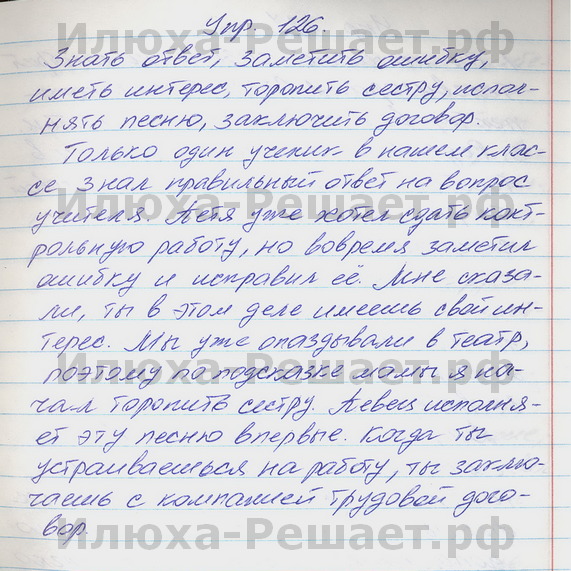 Упр. 126.
Знать ответ, заметить ошибку,
иметь интерес, торопить сестру, испол-
нять песню, заключить договор.
Только один ученик в нашем клас-
се знал правильный ответ на вопрос
учителя. Петя уже хотел сдать конт-
рольную работу, но вовремя заметил
ошибку и исправил её. Мне сказа-
ли, ты в этом деле имеешь свой ин-
терес. Мы уже опаздывали в театр,
поэтому по подсказке мамы я на-
чал торопить сестру. Певец исполня-
ет эту песню впервые. Когда ты
устраиваешься на работу, ты заклю-
чаешь с компанией трудовой дого-
вор.
Илюха-Решает.рф
Илюха-Решает.рф
Илюха-Решает.рф
Илюха-Решает.рф
Илюха-Решает.рф
Илюха-Решает.рф